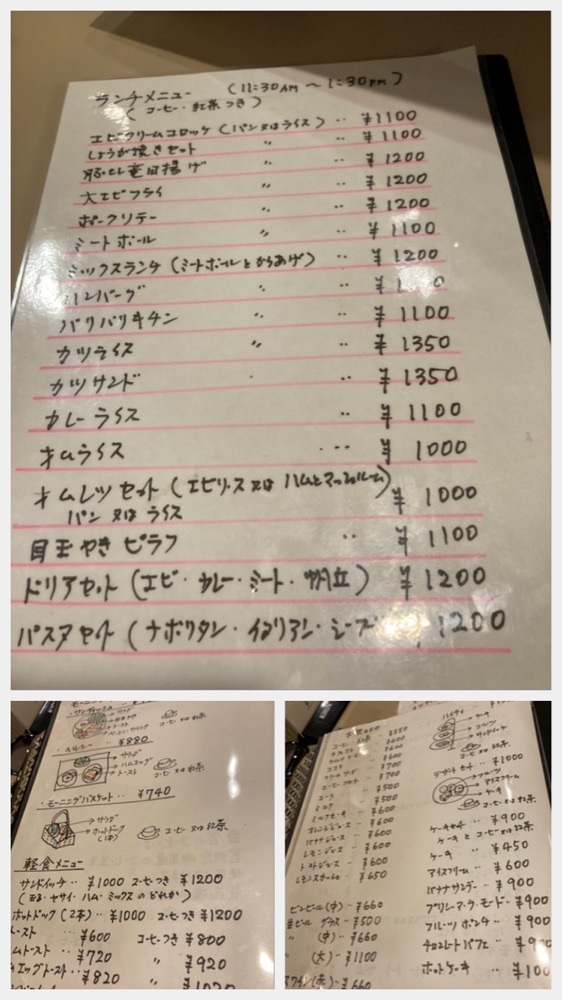 ランチメニュー (11:30AM ～ 1:30PM)
(コーヒー・紅茶つき)
エビクリームコロッケ (パン又はライス) ‥ ¥1100
しょうが焼きセット 〃 ‥ ¥1100
豚ヒレ竜田揚げ 〃 ‥ ¥1200
大エビフライ 〃 ‥ ¥1200
ポークソテー 〃 ‥ ¥1200
ミートボール 〃 ‥ ¥1100
ミックスランチ (ミートボールとからあげ) ‥ ¥1200
ハンバーグ 〃 ‥
パリパリチキン 〃 ‥ ¥1100
カツライス 〃 ‥ ¥1350
カツサンド ‥ ¥1350
カレーライス ‥ ¥1100
オムライス ‥‥ ¥1000
オムレツセット (エビリース又はハムとマッシュルーム) ¥1000
パン又はライス
目玉やきピラフ ‥ ¥1100
ドリアセット (エビ・カレー・ミート・帆立) ¥1200
パスタセット (ナポリタン・イタリアン・シーフ 1200
サラダ
コーヒー又は紅茶
・ヘルシー ¥880
サラダ
ハムエッグ
トースト
コーヒー又は紅茶
・モーニングバスケット ‥ ¥740
サラダ
ホットドック
(1本)
コーヒー又は紅茶
軽食メニュー
サンドイッチ ‥ ¥1000 コーヒーつき ¥1200
(玉子・ヤサイ・ハム・ミックスのどれか)
ホットドック (2本) ‥ ¥1000 コーヒーつき ¥1200
ースト ‥ ¥600 コーヒーつき ¥800
ムトースト ‥ ¥720 〃 ¥920
ムエッグトースト ‥ ¥820 〃 ¥1020
ケーキ
フルーツ
コーヒー又は紅茶
デザートセット ‥ ¥1000
フルーツ
アイスクリーム
ケーキ
コーヒー又は紅茶
コーヒー
ココア ¥700
コーラ ¥500
ミルク ¥500
ミックスジュース ‥ ¥600
オレンジジュース ‥ ¥600
バナナジュース ‥ ¥600
レモンジュース ‥ ¥600
トマトジュース ‥ ¥600
レモンスカッシュ ¥650
ビンビール(中) ‥ ¥660
生ビール グラス ‥ ¥500
〃 (中) ‥ ¥660
〃 (大) ‥ ¥1100
ワイン(赤) ‥ ¥660
ケーキセット ‥ ¥900
ケーキとコーヒー又は紅茶
ケーキ ‥ ¥450
アイスクリーム ‥ ¥600
バナナサンデー ‥ ¥900
プリンアラモード ‥ ¥900
フルーツポンチ ‥ ¥900
チョコレートパフェ ‥ ¥900
ホットケーキ ‥ ¥100